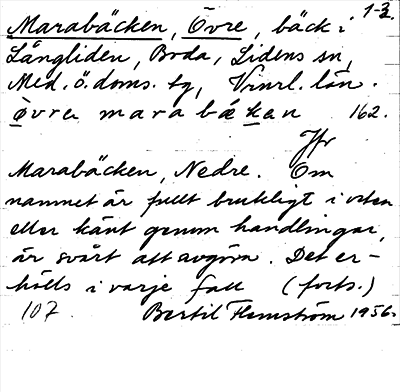 1-3.
Marabäcken, Övre, bäck i
Långliden, Boda, Lidens sn,
Med. ö. doms. tg, Vnrl. län.
övra mara bäkan 162.
Jfr
Marabäcken, Nedre. Om
namnet är fullt brukligt i orten
eller känt genom handlingar,
är svårt att avgöra. Det er-
hölls i varje fall (forts.)
107. Bertil Flemström 1956.